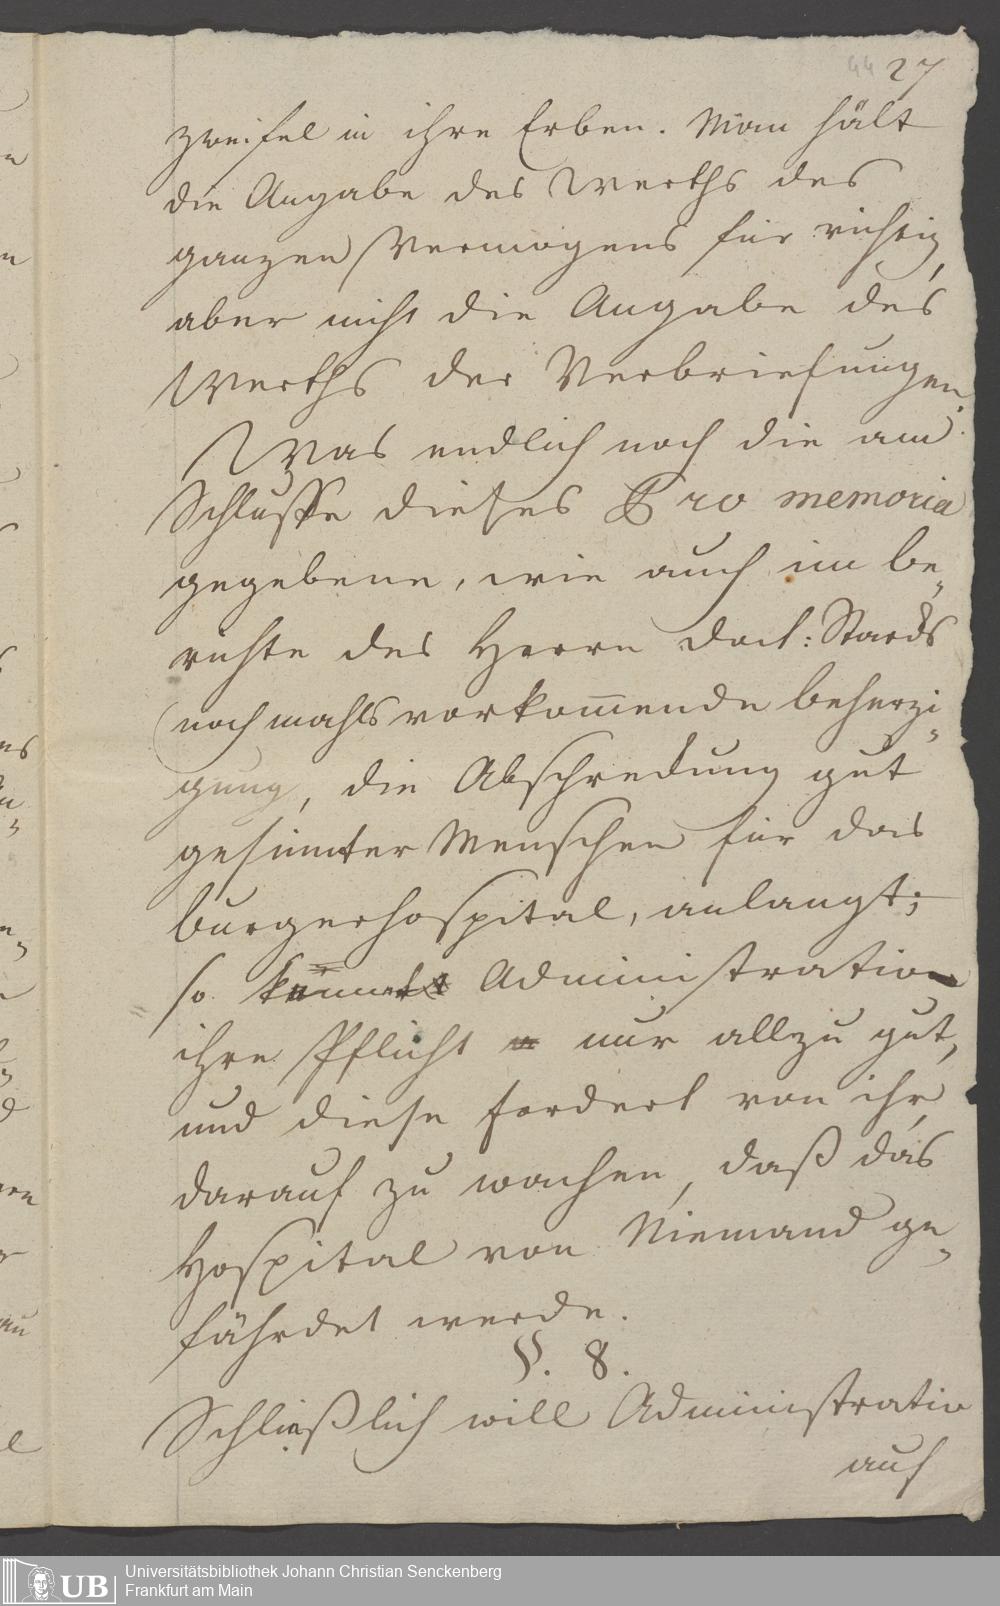 44 27
zweifel in ihre Erben. Man hält
die Angabe des Werths des
ganzen Vermögens für richtig,
aber nicht die Angabe des
Werths der Verbriefungen.
Was endlich noch die am
Schlusse dieses Pro memoria
gegebene, wie auch im be„
richte des Herrn Doct: Starcks
noch mahls vorkom̅ende beherzi„
gung, die Abschreckung gut
gesinnter Menschen für das
burgerhospital, anlangt;
so kennet Administration
ihre Pflicht nur allzu gut,
und diese fordert von ihr,
darauf zu wachen, daß das
Hospital von Niemand ge„
fährdet werde.
§. 8.
Schließlich will Administratio
auf
UB Universitätsbibliothek Johann Christian Senckenberg
Frankfurt am Main